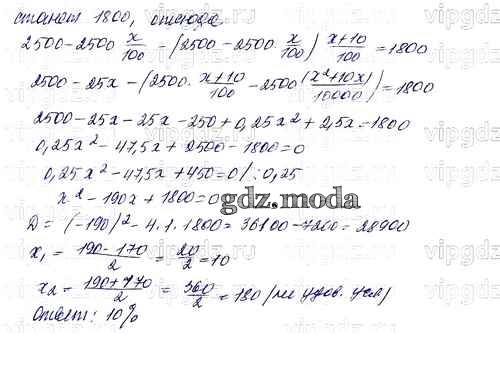 станет 1800, отсюда
2500-2500 x/100 - (2500-2500· x/100) x+10/100 =1800
2500-25x-(2500· x+10/100 -2500 (x²+10x)/10000)=1800
2500-25x-25x-250+0,25x²+2,5x=1800
0,25x²-47,5x+2500-1800=0
0,25x²-47,5x+450=0/:0,25
x²-190x+1800=0
gdz.moda
D= (-190)²-4·1·1800=36100-7200=28900
x₁= 190-170/2 = 20/2 =10
x₂= 190+170/2 = 360/2 =180 (не удов. усл)
Ответ: 10%
vipgdz